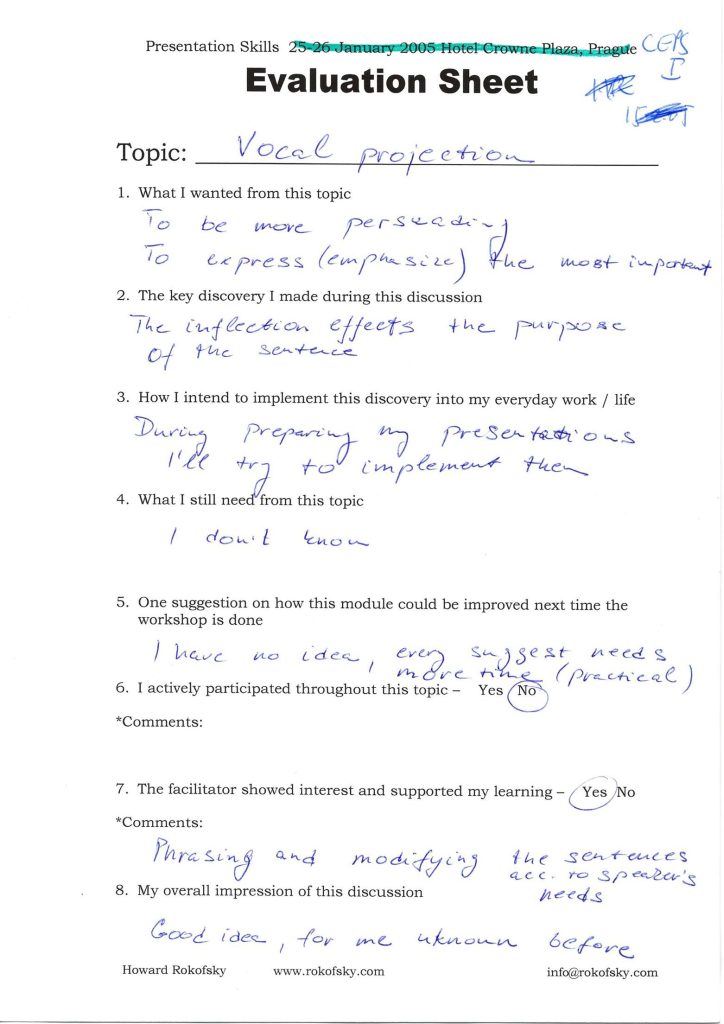 Presentation Skills 25-26 January 2005 Hotel Crowne Plaza, Prague CEPS
I
Evaluation Sheet
Topic: Vocal projection
1. What I wanted from this topic
To be more persuading
To express (emphasize) the most important
2. The key discovery I made during this discussion
The inflection effects the purpose
of the sentence
3. How I intend to implement this discovery into my everyday work / life
During preparing my presentations
I'll try to implement them
4. What I still need from this topic
I don't know
5. One suggestion on how this module could be improved next time the
workshop is done
I have no idea, every suggest needs
more time (practical)
6. I actively participated throughout this topic – Yes No
*Comments:
7. The facilitator showed interest and supported my learning – Yes No
*Comments:
Phrasing and modifying the sentences
acc. to speaker's
needs
8. My overall impression of this discussion
Good idea, for me uknoun before
Howard Rokofsky www.rokofsky.com info@rokofsky.com